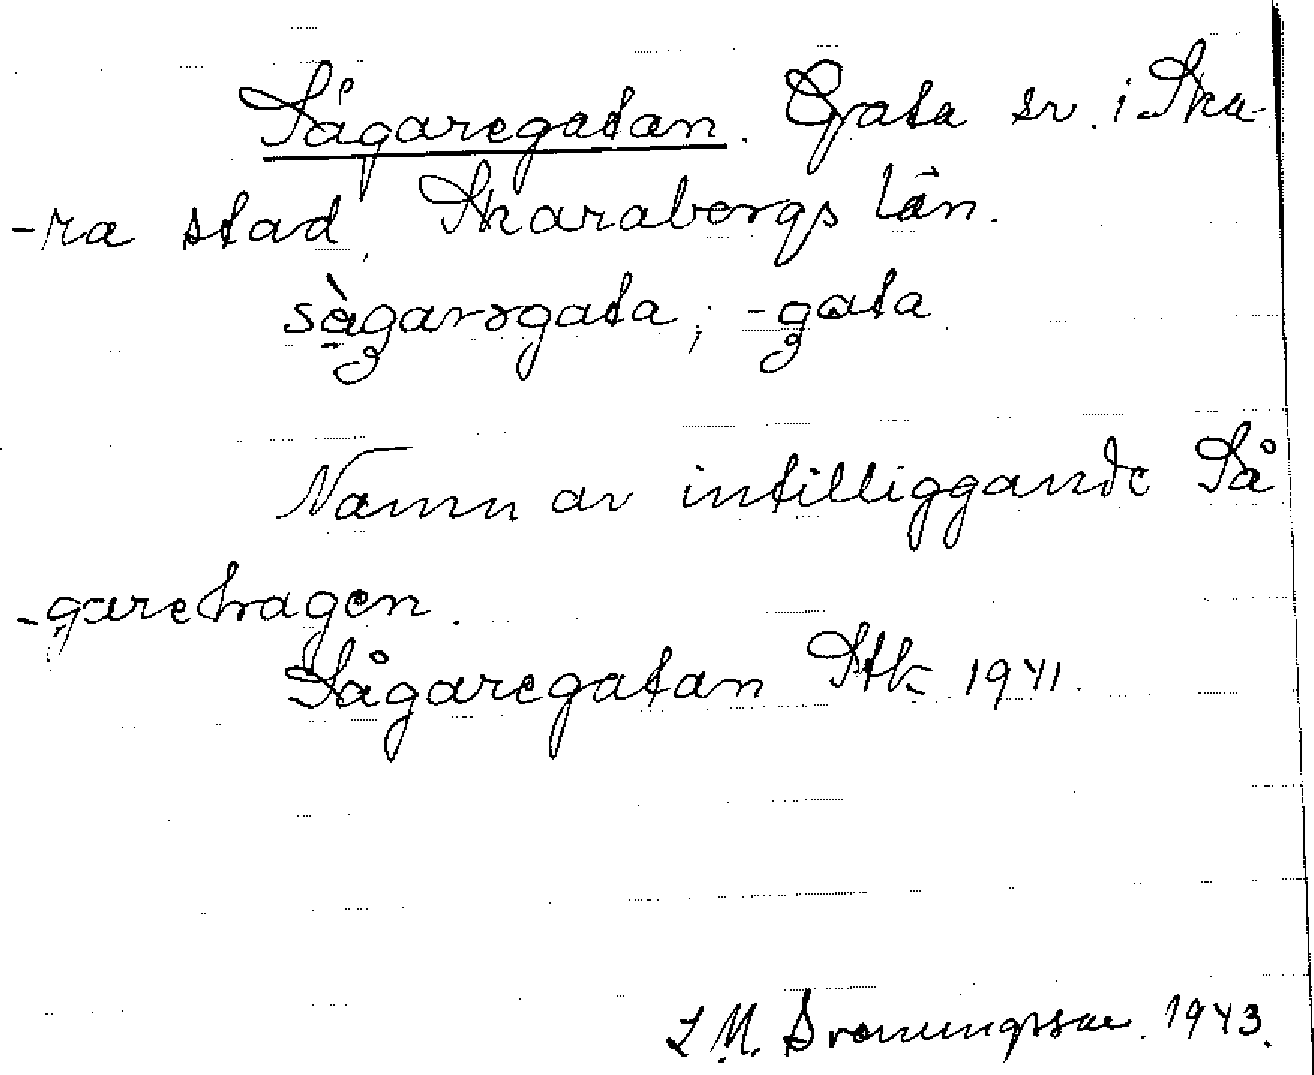 Sågaregatan. Gata sv. i Ska-
-ra stad, Skarabergs län.
sàgarəgata; -gata
Namn av intilliggande Så
-garehagen.
Sågaregatan Stk 1941.
L M. Svenungsson. 1943.